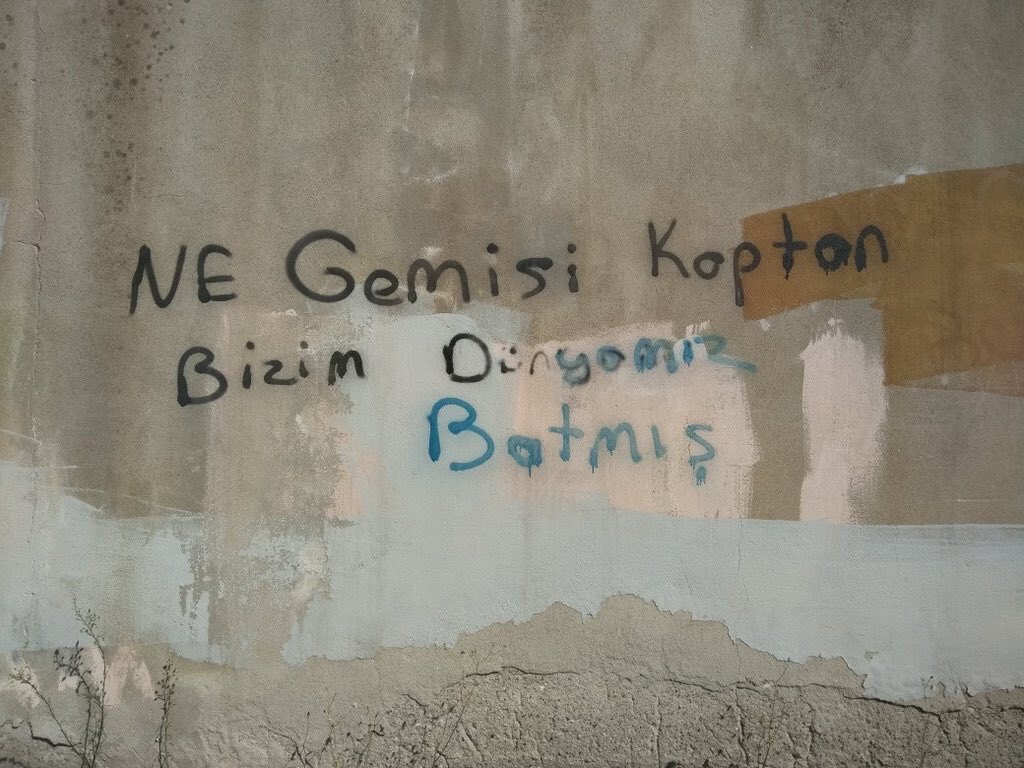 NE Gemisi Kaptan
Bizim Dünyamız
Batmış